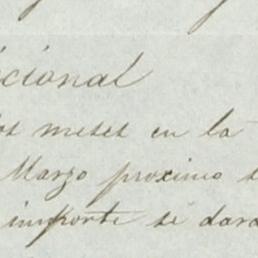 icional
os meses en la
Marzo proximo
importe se dara